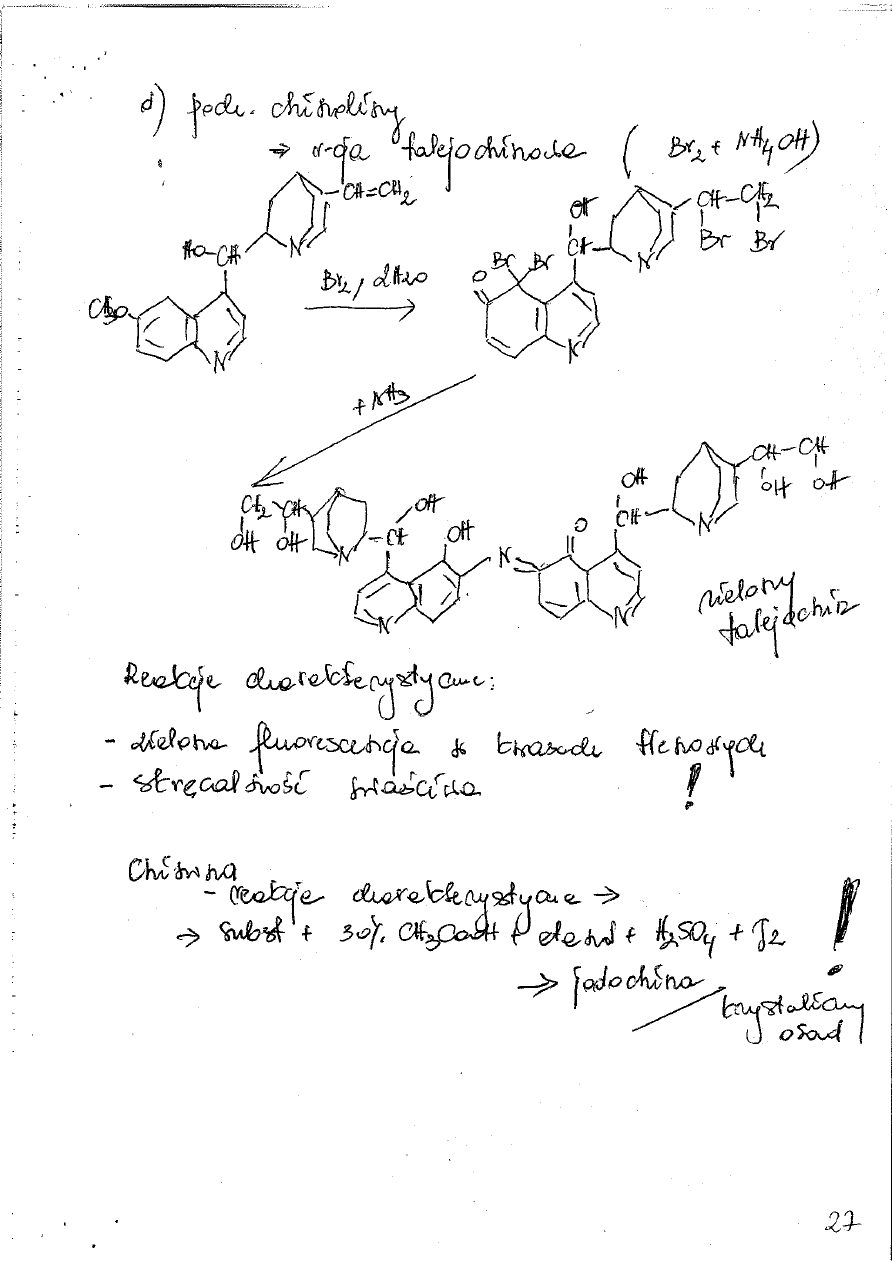 d) poch. chinoliny
→ r-cja talejochinowa (Br2 + NH4OH)
CH=CH2
HO-CH
N
CH3O
N
Br2, H2O
OH
CH-CH2
Br Br
CH
N
Br Br
O
N
+ NH3
CH2 CH
OH OH
N
OH
CH
OH
N
N
O
OH
CH
N
CH-CH
OH OH
N
zielony
talejochin
Reakcje charakterystyczne:
- zielona fluorescencja w kwasach tlenowych
- strącalność !
Chinina
- reakcje charakterystyczne →
→ subst + 30% CH3COOH + etanol + H2SO4 + J2 !
→ jodochina
krystaliczny
osad
27